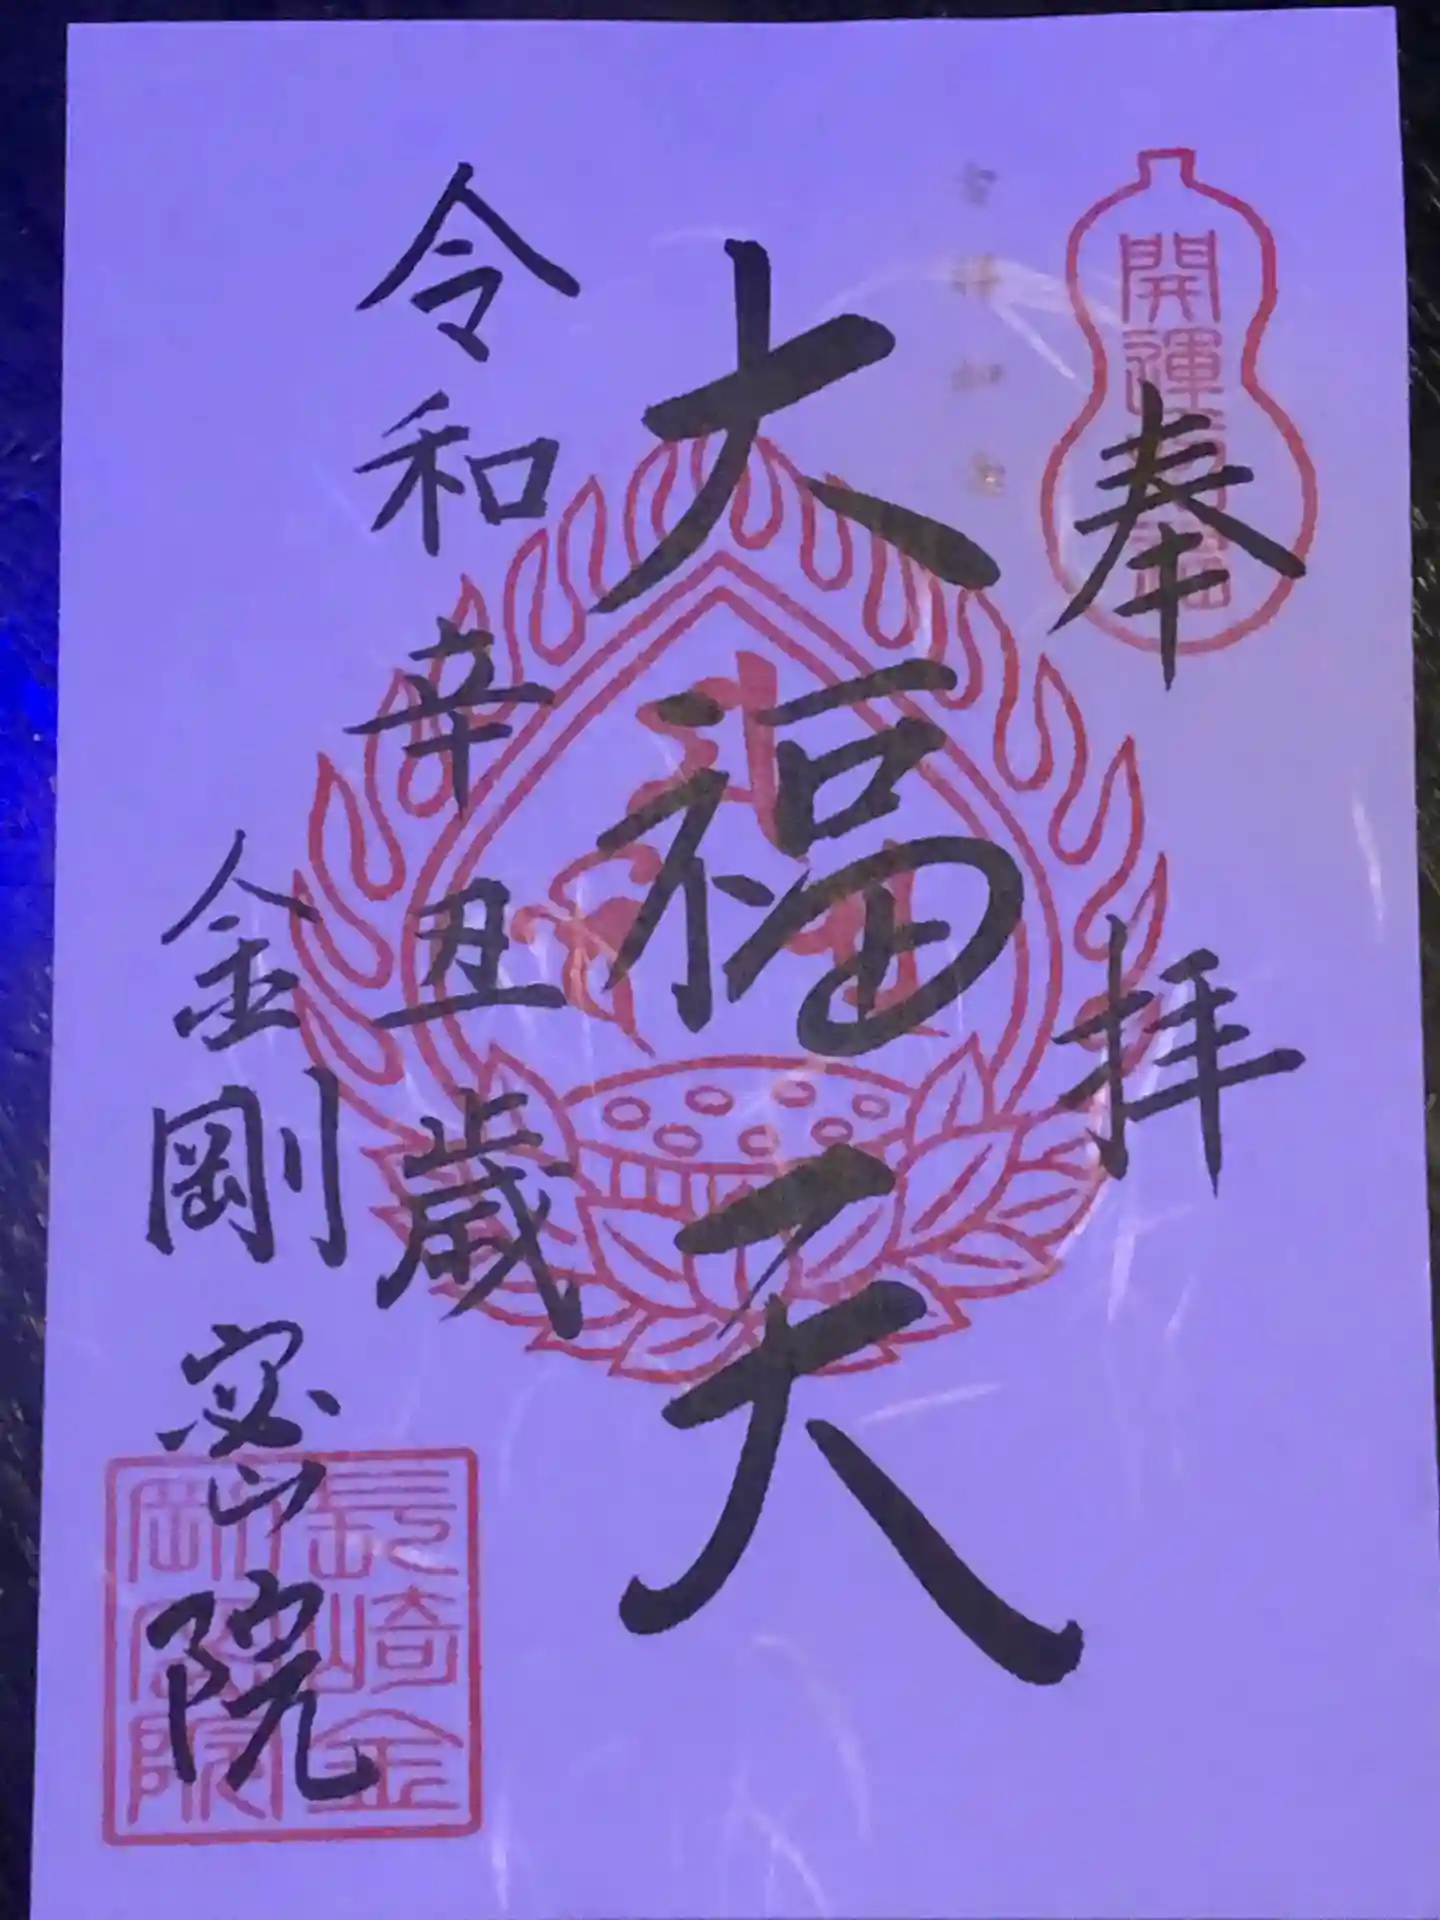 奉拝
開運
大福天
令和辛丑歳
金剛密院
長崎金剛密院